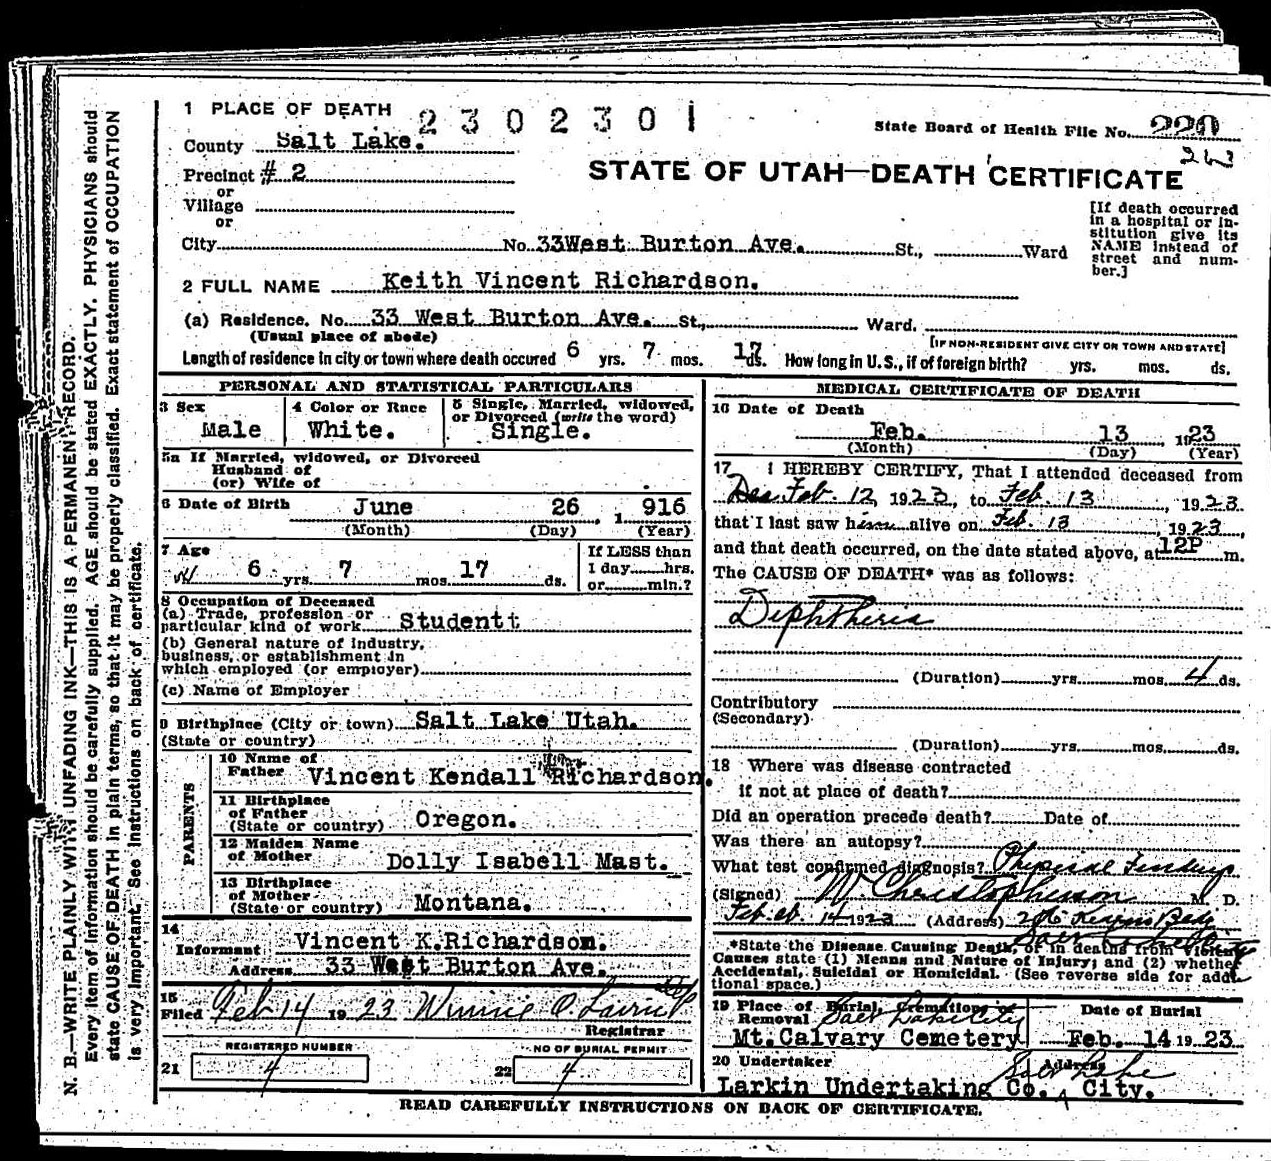 1 PLACE OF DEATH
2302301
State Board of Health File No. 220
County Salt Lake.
Precinct # 2
STATE OF UTAH—DEATH CERTIFICATE
or
Village
or
City No. 33West Burton Ave. St., Ward
[If death occurred
in a hospital or in-
stitution give its
NAME instead of
street and num-
ber.]
2 FULL NAME Keith Vincent Richardson.
(a) Residence. No. 33 West Burton Ave. St., Ward.
(Usual place of abode)
[IF NON-RESIDENT GIVE CITY OR TOWN AND STATE]
Length of residence in city or town where death occured 6 yrs. 7 mos. 17 ds. How long in U.S., if of foreign birth? yrs. mos. ds.
PERSONAL AND STATISTICAL PARTICULARS
3 Sex
Male
4 Color or Race
White.
5 Single, Married, widowed,
or Divorced (write the word)
Single.
5a If Married, widowed, or Divorced
Husband of
(or) Wife of
6 Date of Birth June 26 , 1916
(Month) (Day) (Year)
7 Age
6 yrs. 7 mos. 17 ds.
If LESS than
1 day......hrs.
or......min.?
8 Occupation of Deceased
(a) Trade, profession or
particular kind of work. Studentt
(b) General nature of industry,
business, or establishment in
which employed (or employer)
(c) Name of Employer
9 Birthplace (City or town) Salt Lake Utah.
(State or country)
PARENTS
10 Name of
Father Vincent Kendall Richardson.
11 Birthplace
of Father
(State or country) Oregon.
12 Maiden Name
of Mother Dolly Isabell Mast.
13 Birthplace
of Mother
(State or country) Montana.
14
Informant Vincent K.Richardson.
Address 33 West Burton Ave.
15
Filed Feb 14 1923
Registrar
REGISTERED NUMBER
21 4
NO OF BURIAL PERMIT
22 4
MEDICAL CERTIFICATE OF DEATH
16 Date of Death
Feb. 13 , 1923
(Month) (Day) (Year)
17 I HEREBY CERTIFY, That I attended deceased from
Feb. 12, 1923, to Feb. 13, 1923.
that I last saw him alive on Feb. 13, 1923,
and that death occurred, on the date stated above, at 12P m.
The CAUSE OF DEATH* was as follows:
Diphtheria
(Duration) yrs. mos. 4 ds.
Contributory
(Secondary)
(Duration) yrs. mos. ds.
18 Where was disease contracted
if not at place of death?
Did an operation precede death? Date of
Was there an autopsy?
What test confirmed diagnosis? Physical Findings
(Signed) W Christopherson M. D.
Feb. 14 1923 (Address)
*State the Disease Causing Death, or in deaths from Violent
Causes state (1) Means and Nature of Injury; and (2) whether
Accidental, Suicidal or Homicidal. (See reverse side for addi-
tional space.)
19 Place of Burial, Cremation or
Removal Salt Lake City
Mt.Calvary Cemetery
Date of Burial
Feb. 14 1923
20 Undertaker
Larkin Undertaking Co.
Address
Salt Lake
City.
READ CAREFULLY INSTRUCTIONS ON BACK OF CERTIFICATE.
N. B.—WRITE PLAINLY WITH UNFADING INK—THIS IS A PERMANENT RECORD.
Every item of information should be carefully supplied. AGE should be stated EXACTLY. PHYSICIANS should
state CAUSE OF DEATH in plain terms, so that it may be properly classified. Exact statement of OCCUPATION
is very important. See instructions on back of certificate.